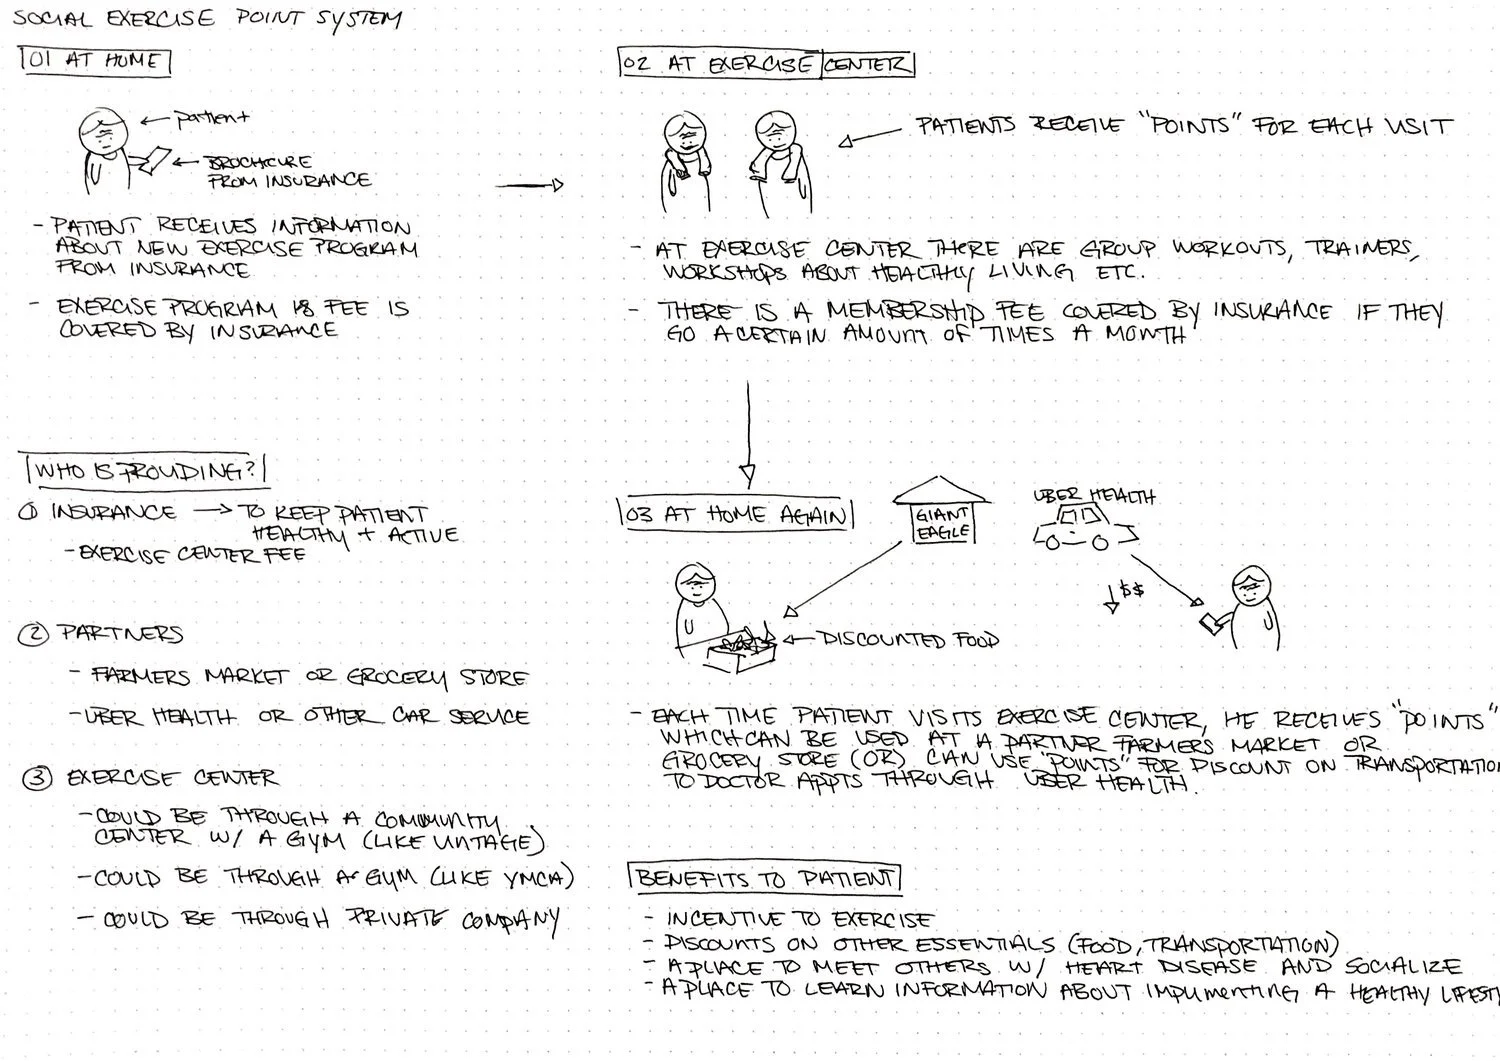 SOCIAL EXERCISE POINT SYSTEM
01 AT HOME
patient
BROCHCURE
FROM INSURANCE
- PATIENT RECEIVES INFORMATION
ABOUT NEW EXERCISE PROGRAM
FROM INSURANCE
- EXERCISE PROGRAM FEE IS
COVERED BY INSURANCE
02 AT EXERCISE CENTER
PATIENTS RECEIVE "POINTS" FOR EACH VISIT
- AT EXERCISE CENTER THERE ARE GROUP WORKOUTS, TRAINERS,
WORKSHOPS ABOUT HEALTHLY LIVING ETC.
- THERE IS A MEMBERSHIP FEE COVERED BY INSURANCE IF THEY
GO A CERTAIN AMOUNT OF TIMES A MONTH
WHO IS PROVIDING?
① INSURANCE → TO KEEP PATIENT
HEALTHY + ACTIVE
- EXERCISE CENTER FEE
② PARTNERS
- FARMERS MARKET OR GROCERY STORE
- UBER HEALTH OR OTHER CAR SERVICE
③ EXERCISE CENTER
- COULD BE THROUGH A COMMUNITY
CENTER W/ A GYM (LIKE VINTAGE)
- COULD BE THROUGH A GYM (LIKE YMCA)
- COULD BE THROUGH PRIVATE COMPANY
03 AT HOME AGAIN
GIANT
EAGLE
UBER HEALTH
$$
DISCOUNTED FOOD
- EACH TIME PATIENT VISITS EXERCISE CENTER, HE RECEIVES "POINTS"
WHICH CAN BE USED AT A PARTNER FARMERS MARKET OR
GROCERY STORE (OR) CAN USE "POINTS" FOR DISCOUNT ON TRANSPORTATIO
TO DOCTOR APPTS THROUGH UBER HEALTH.
BENEFITS TO PATIENT
- INCENTIVE TO EXERCISE
- DISCOUNTS ON OTHER ESSENTIALS (FOOD, TRANSPORTATION)
- A PLACE TO MEET OTHERS W/ HEART DISEASE AND SOCIALIZE
- A PLACE TO LEARN INFORMATION ABOUT IMPLIMENTING A HEALTHY LIFESTY